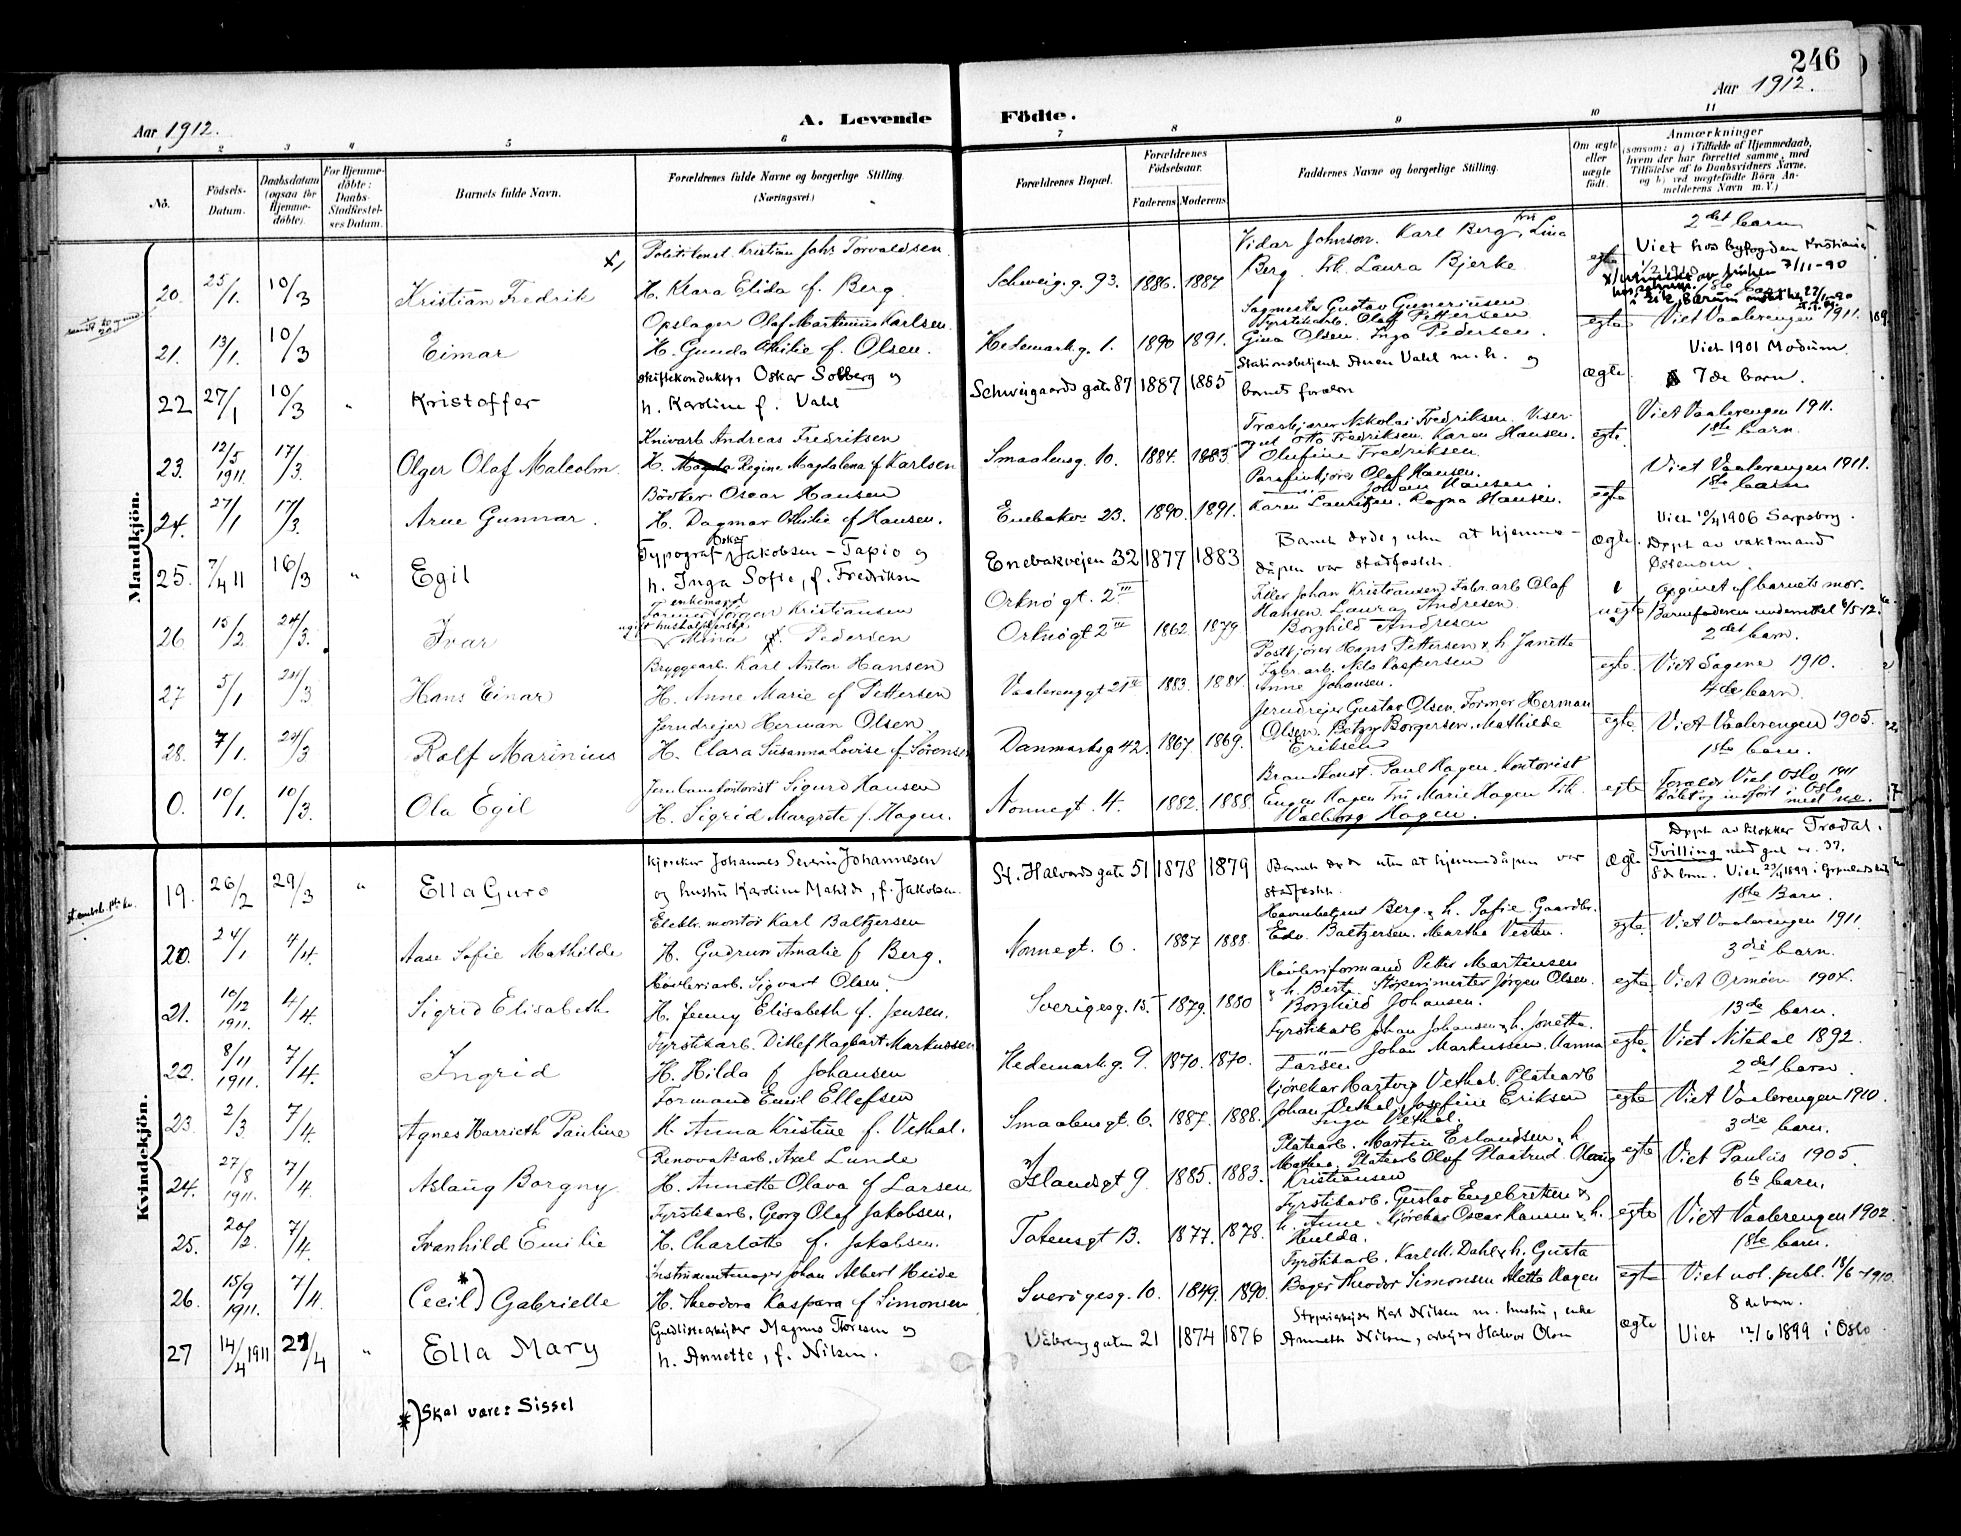 246
Aar 1912.
A. Levende Födte.
Aar 1912.
1 2 3 4 5 6 7 8 9 10 11
No.
Födsels-Datum.
Daabsdatum (ogsaa for Hjemme-döbte).
For Hjemme-döbte: Daabs-Stadfæstel-ses Datum.
Barnets fulde Navn.
Forældrenes fulde Navne og borgerlige Stilling.
(Næringsvei.)
Forældrenes Bopæl.
Forældrenes Födselsaar.
Faderens Moderens
Faddernes Navne og borgerlige Stilling.
Om ægte eller uægte födt.
Anmærkninger
(saasom: a) i Tilfælde af Hjemmedaab, hvem der har forrettet samme, med Tilföielse af to Daabsvidners Navne, og b) ved uægtefödte Börn An-melderens Navn m. V.)
Mandkjön.
20. 25/1. 10/3 Kristian Fredrik x)
Politikonst. Kristian Johs Torvaldsen
H. Klara Elida f. Berg.
Schweig.g. 93. 1886. 1887
Vidar Johnson. Karl Berg, fru Lina
Berg. frk. Laura Bjerke
egte
2det barn
Viet hos byfogden Kristiania
1/2 1910
21. 13/1. 10/3 Eimar
Opslager Olaf Martinius Karlsen.
H. Gunda Othilie f. Olsen.
Hedemarkg. 1. 1890 1891.
Sagmester Gustav Guneriusen
Fyrstikarb. Olaf Pettersen
Gina Olsen. Inga Pedersen.
egte
1ste barn
Viet Vaalerengen 1911.
22 27/1 10/3 " Kristoffer
Skiftekonduktør Oskar Solberg og
h. Karoline f. Vahl
Schweigaards gate 87 1887 1885
Stationsbetjent Anen Vahl m. h. og
barnets foreldre
ægte
Viet 1901 Modum.
7de barn.
23. 12/5 1911 17/3. Olger Olaf Malcolm.
Knivarb. Andreas Fredriksen
H. Regine Magdalena f Karlsen
Smaalensg. 10. 1884. 1883
Otto Fredriksen. Karen Hansen.
Olufine Fredriksen.
egte.
Viet Vaalerengen 1911.
1ste barn.
24. 27/1 17/3. Arne Gunnar.
Bödker Oscar Hansen
H. Dagmar Othilie f Hansen.
Enebakv. 23. 1890. 1891.
Parafinkjörer Olaf Hansen.
Johan Hansen.
Karen Lauritzen. Ragna Hansen.
egte
Viet Vaalerengen 1911.
1ste barn
25. 7/4 11 16/3 " Egil
Typograf Oskar Jakobsen - Tapio og
h. Inga Sofie, f. Fredriksen
Enebakvejen 32 1877 1883
Barnet døde, uten at hjemme-
dåpen var stadfæstet.
ægte.
Viet 15/4 1906 Sarpsborg.
Døpt av vaktmand
Østensen.
26 15/2 24/3. Ivar
enkemand
Kristiansen
ugift husholderske
Mina Pedersen
Orknögt. 2 III
Orknögt 2 III 1862 1879
Feller Johan Kristiansen Fabr.arb Olaf
Hansen. Laura Andresen
Borghild Andresen
uegte
opgivet af barnets mor.
Barnefaderen underrettet 6/5 12.
2det barn.
27 5/1 24/3 Hans Einar
Bryggearb. Karl Anton Hansen
H. Anne Marie f Pettersen
Vaalerenggt 21 1883. 1884.
Postkjörer Hans Pettersen & h. Janette
Fabr.arb. Nils Kaspersen
Anne Johansen.
egte.
Viet Sagene 1910.
4de barn.
28. 7/1. 24/3 Rolf Marinius
Jerndrejer Herman Olsen
H. Clara Susanna Lovise f. Sörensen
Danmarksg 42. 1867. 1869.
Jerndrejer Gustav Olsen, Former Herman
Olsen. Betzy Borgersen. Mathilde
Eriksen
egte
Viet Vaalerengen 1905.
1ste barn.
0. 10/1. 10/3. Ola Egil
Jernbanekontorist Sigurd Hansen
H. Sigrid Margrete f. Hagen.
Nonnegt. 4. 1882. 1888
Brandkonst. Paul Hagen. Kontorist
Eugen Hagen Fru Marie Hagen Frk.
Valborg Hagen.
egte
Foreldr. Viet Oslo 1911
Döbt og indfört i Oslo
Kvindekjön.
19. 26/2 29/3 " Ella Guro
kjøreker Johannes Severin Johannesen
og hustru Karoline Matilde, f. Jakobsen.
St. Halvards gate 51 1878 1879
Barnet døde uten at hjemmedåpen var
stadfæstet.
ægte
Døpt av klokker Trædal.
Tvilling med gut nr. 37.
8de barn. Viet 23/4 1899 i Grønlands kirk
20. 24/1 4/4. Aase Sofie Mathilde
Elektr. montör Karl Baltzersen
H. Gudrun Amalie f Berg.
Nonnegt. 6. 1887 1888.
Havnebetjent Berg & h. Sofie Gaardbr.
Edv. Baltzersen. Martha Vesten.
egte.
1ste Barn.
Viet Vaalerengen 1911.
21. 10/12 1911. 4/4. Sigrid Elisabeth
Sigvart Olsen.
H. Jenny Elisabeth f. Jensen.
Sverigesg. 15. 1879. 1880
Petter Martinsen
& h. Berte. Jörgen Olsen.
Borghild Johansen.
egte.
3die barn.
Viet Ormöen 1904.
22. 8/11 1911. 7/4. Ingrid
Fyrstikarb. Ditlef Hagbart Markussen
H. Hilda f Johansen
Hedemarkg. 9. 1870. 1870.
Fyrstikarb Johan Johansen & h. Jonetta.
Johan Markussen. Hanna
Larsen
egte.
13de barn.
Viet Nitedal 1892.
23. 2/3 7/4. Agnes Harrieth Pauline
Formand Emil Ellefsen
H. Anna Kristine f. Vethal.
Smaalensgt 6. 1887. 1888.
Kjörekar Hartvig Vethal. Platearb
Johan Vethal, Josefine Eriksen
Inga Vethal.
egte
2det barn.
Viet Vaalerengen 1910.
24. 27/8 1911. 7/4 Aslaug Borgny
Renovat.arb. Axel Lunde
H. Annette Olava f Larsen
Islandsgt 9. 1885. 1883.
Platearb. Martin Erlandsen & h
Mathea, Platearb Olaf Plaatrud Olaug
Kristiansen
egte
3die barn.
Viet Paulus 1905.
25. 20/2. 7/4. Svanhild Emilie
Fyrstikarb. Georg Olaf Jakobsen.
H. Charlotte f. Jakobsen.
Totensgt 13. 1877. 1878.
Fyrstikarb. Gustav Engebretsen &
h. Anne. Kjörekar Oscar Hansen & h.
Hulda.
egte
6te barn.
Viet Vaalerengen 1902.
26. 15/9 1911. 7/4. Cecil*) Gabrielle
Instrumentmager Johan Albert Heide
H. Theodora Kaspara f Simonsen
Sverigesg. 10. 1849. 1890.
Fyrstikarb. Karl M. Dahl & h. Gusta
Bager Theodor Simonsen Alette Hagen
egte
1ste barn.
Viet not. publ. 18/6 - 1910.
27 14/4 1911 27/4 " Ella Mary
Gullistearbejder Magnus Thoresen og
h. Annette, f. Nilsen.
Vålerenggaten 21 1874 1876
Støperiarbejder Karl Nilsen m. hustru, enke
Anneth Nilsen, arbejder Halvor Olsen
ægte
8de barn.
Viet 12/6 1899 i Oslo
*) Skal være: Sissel